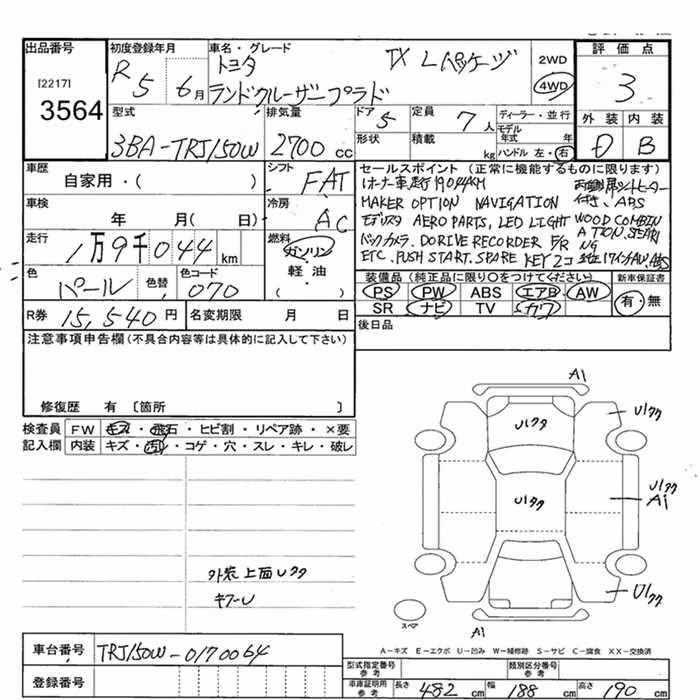 出品番号
[2217]
3564
初度登録年月
R 5 6月
車名・グレード
トヨタ TX Lパッケージ
ランドクルーザープラド
2WD
4WD
評価点
3
外装 内装
D B
型式
3BA-TRJ150W
排気量
2700 CC
ドア
5
形状
定員
7人
積載
kg
ディーラー・並行
モデル年式 年
ハンドル 左・右
車歴
自家用・( )
シフト
FAT
車検
年 月( 日)
冷房
AC
走行
1万9千044km
燃料
ガソリン
軽油
( )
色
パール
色替
色コード
070
R券 15,540円
名変期限 月 日
セールスポイント(正常に機能するものに限ります)
1オーナー車走行19044KM
MAKER OPTION NAVIGATION
モデリスタ AERO PARTS, LED LIGHT
バックカメラ. DORIVE RECORDER F/R
ETC. PUSH START. SPARE KEY 2コ
付き、ABS
WOOD COMBIN
ATION. STEARI
NG
装備品(純正品に限り○をつけてください)
PS PW ABS エアB AW
SR ナビ TV カワ
新車保証書
有・無
後日品
注意事項申告欄(不具合内容等は具体的に記入して下さい)
修復歴 有 〔箇所 〕
検査員
記入欄
FW キズ・飛石・ヒビ割・リペア跡・×要
内装 キズ・汚れ・コゲ・穴・スレ・キレ・破レ
外装 上面Uクク
キワーU
A1
Uクク
U1クク
U1クク
U1クク
A1
U1クク
A1
スペア
A-キズ E-エクボ U-凹み W-補修跡 S-サビ C-腐食 XX-交換済
車台番号
TRJ150W-0170064
登録番号
型式指定番号 参考
類別区分番号 参考
車庫証明用 参考
長さ 482cm
幅 188cm
高さ 190cm